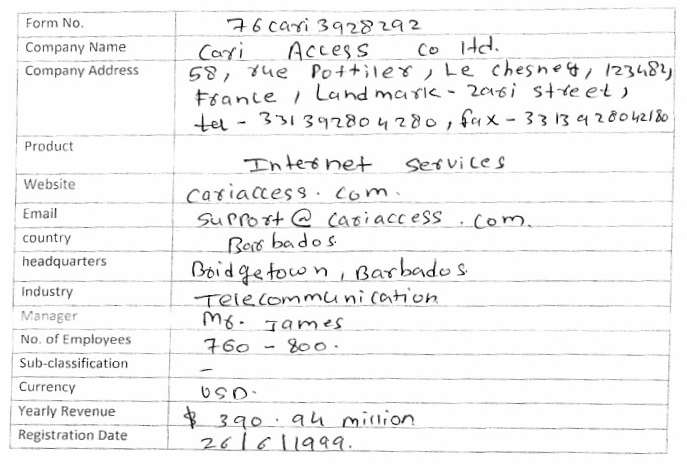 Form No. 76cari3928292
Company Name Cari Access co ltd.
Company Address 58, rue Pottiler, Le chesney, 123482,
France, Landmark - zari street,
tel - 331392804280, fax - 3313928042180
Product
Internet services
Website cariaccess.com.
Email support@cariaccess.com.
country Barbados.
headquarters Bridgetown, Barbados
Industry Telecommunication
Manager Mr. James
No. of Employees 760 - 800.
Sub-classification -
Currency USD.
Yearly Revenue $ 390.94 million
Registration Date 26/6/1999.